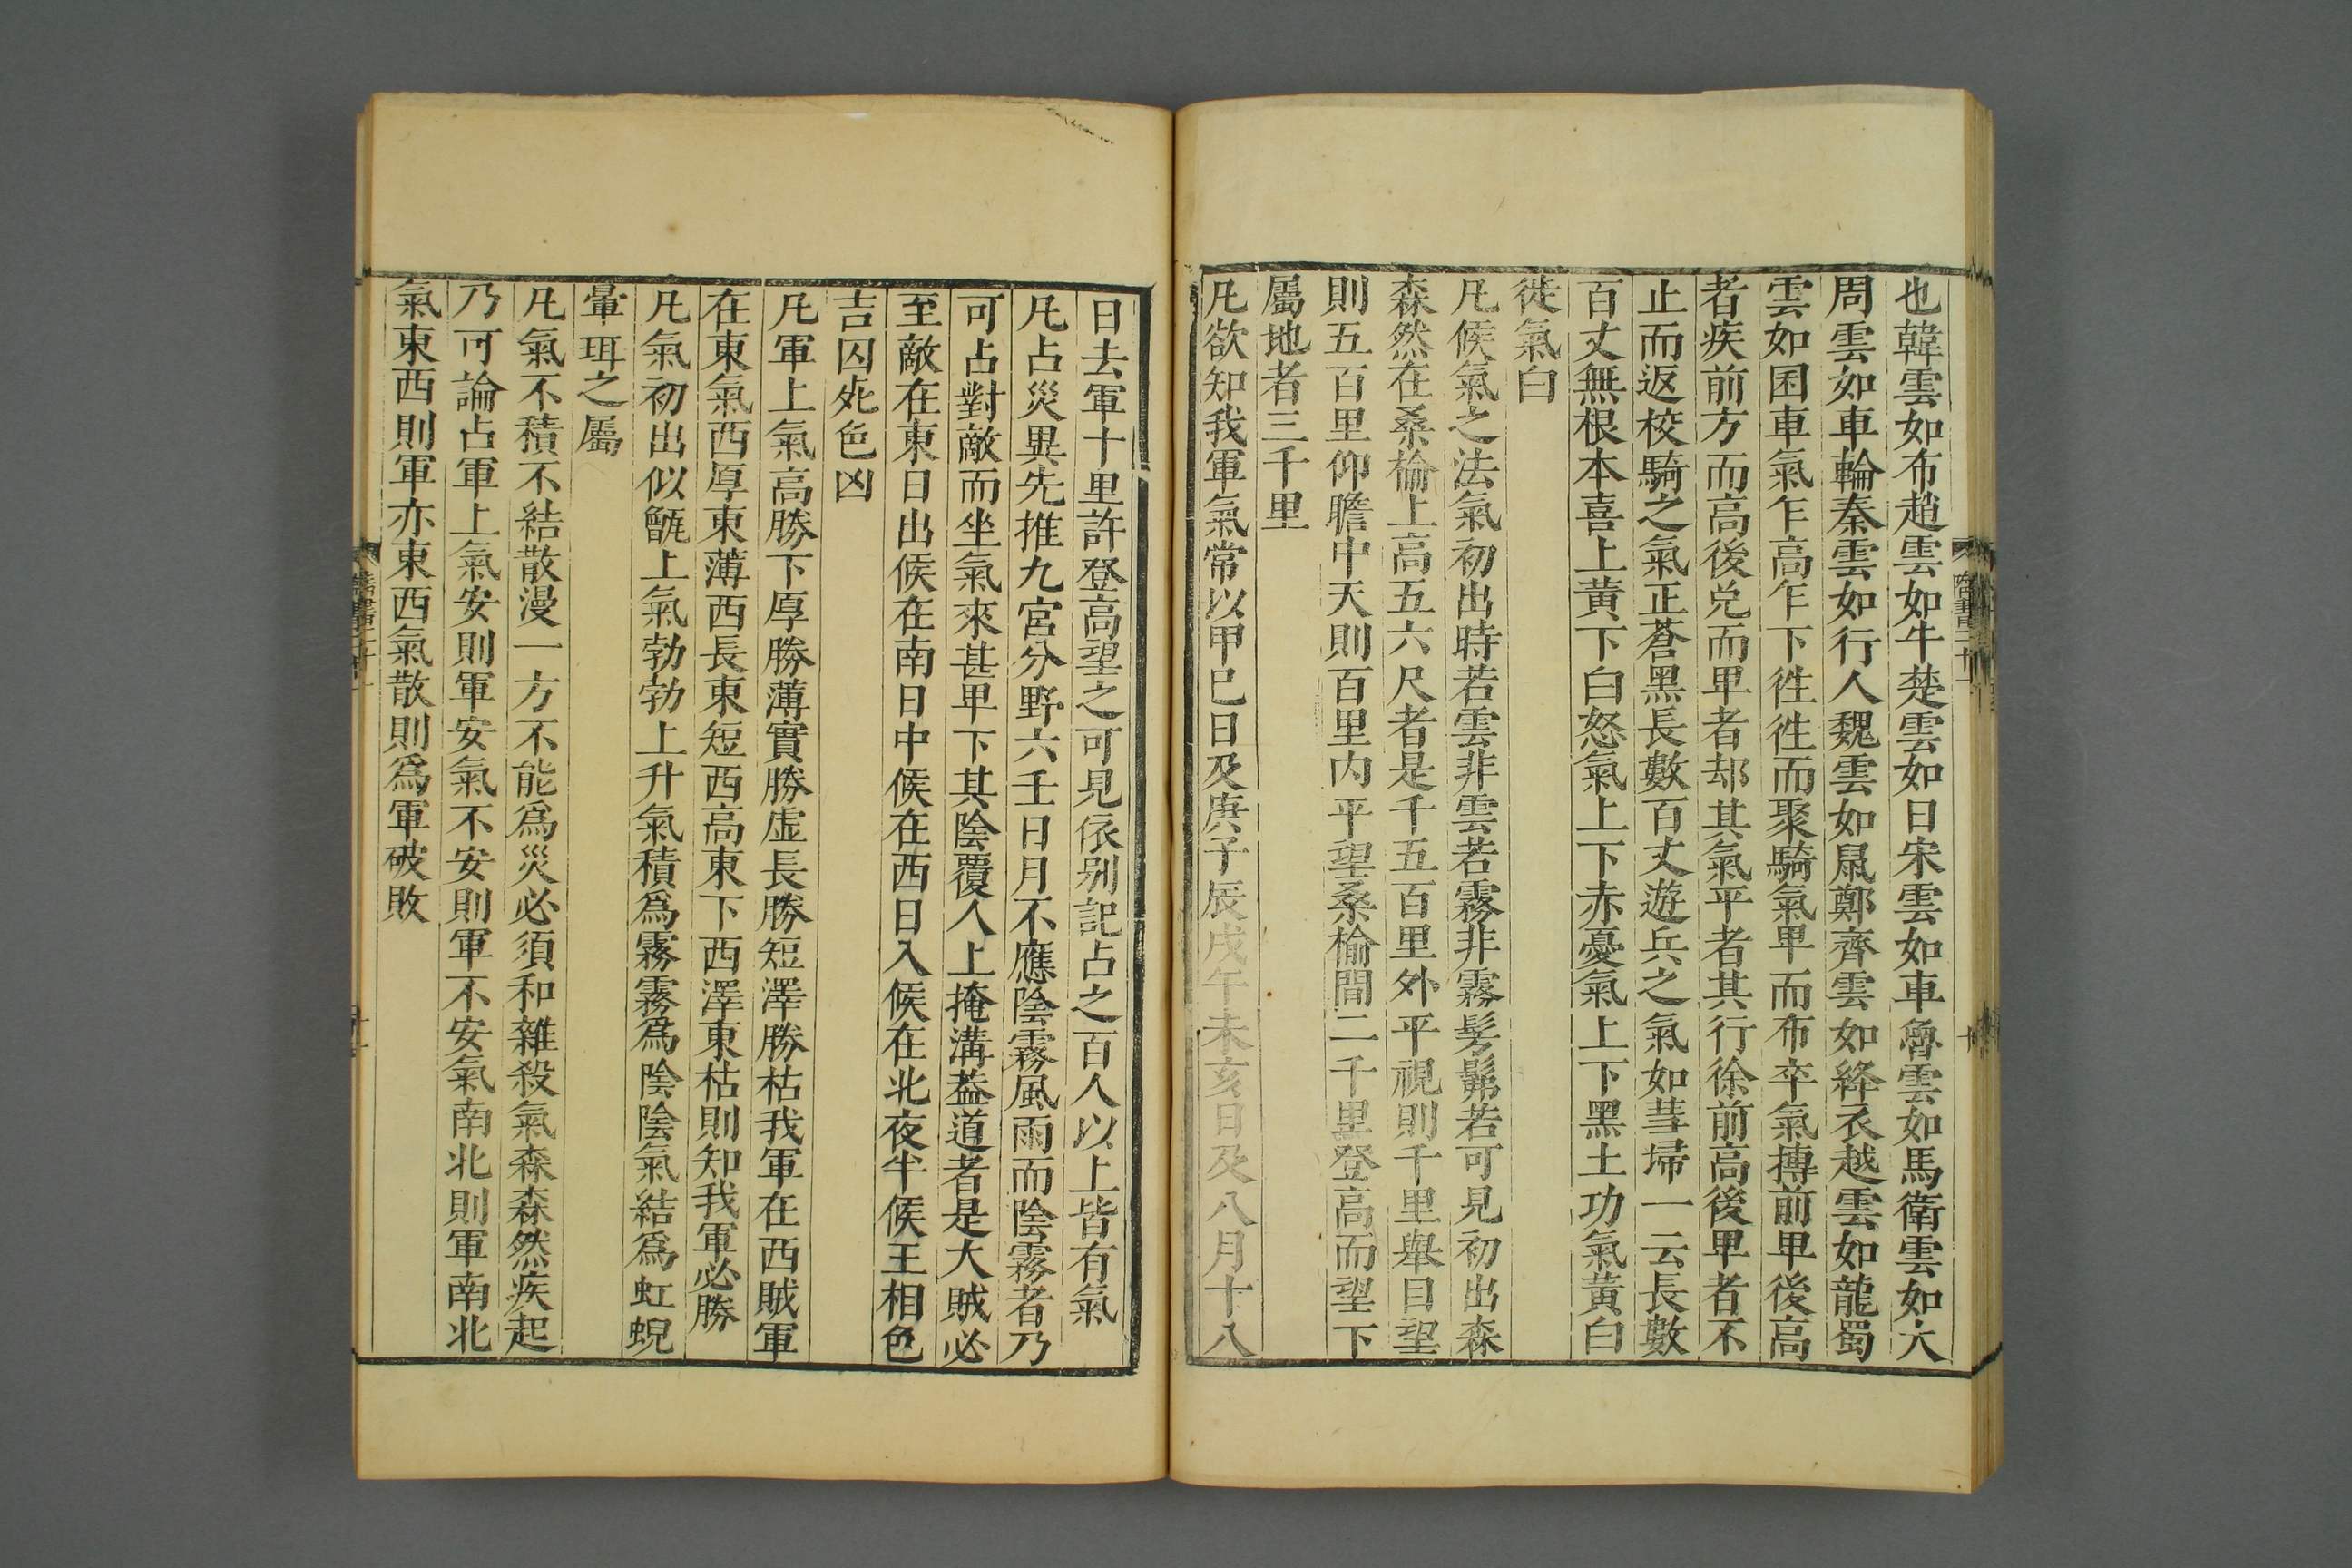 也韓雲如布趙雲如牛楚雲如日宋雲如車魯雲如馬衛雲如犬
周雲如車輪秦雲如行人魏雲如鼠鄭齊雲如絳衣越雲如龍蜀
雲如囷車氣乍高乍下徃徃而聚騎氣𤰞而布卒氣摶前𤰞後高
者疾前方而高後兊而𤰞者却其氣平者其行徐前高後𤰞者不
止而返校騎之氣正蒼黑長數百丈遊兵之氣如彗埽一云長數
百丈無根本喜上黄下白怒氣上下赤憂氣上下黑土功氣黄白
徙氣白
凡候氣之法氣初出時若雲非雲若霧非霧髣髴若可見初出森
森然在桑榆上高五六尺者是千五百里外平視則千里舉目望
則五百里仰瞻中天則百里内平望桑榆間二千里登高而望下
屬地者三千里
凡欲知我軍氣常以甲巳日及庚子辰戌午未亥日及八月十八
日去軍十里許登高望之可見依别記占之百人以上皆有氣
凡占災異先推九宫分野六壬日月不應陰霧風雨而陰霧者乃
可占對敵而坐氣來甚𤰞下其陰覆人上掩溝葢道者是大賊必
至敵在東日出候在南日中候在西日入候在北夜半候王相色
吉囚死色凶
凡軍上氣高勝下厚勝薄實勝虛長勝短澤勝枯我軍在西賊軍
在東氣西厚東薄西長東短西高東下西澤東枯則知我軍必勝
凡氣初出似甑上氣勃勃上升氣積爲霧霧爲陰陰氣結爲虹蜺
暈珥之屬
凡氣不積不結散漫一方不能爲災必須和雜殺氣森森然疾起
乃可論占軍上氣安則軍安氣不安則軍不安氣南北則軍南北
氣東西則軍亦東西氣散則爲軍破敗